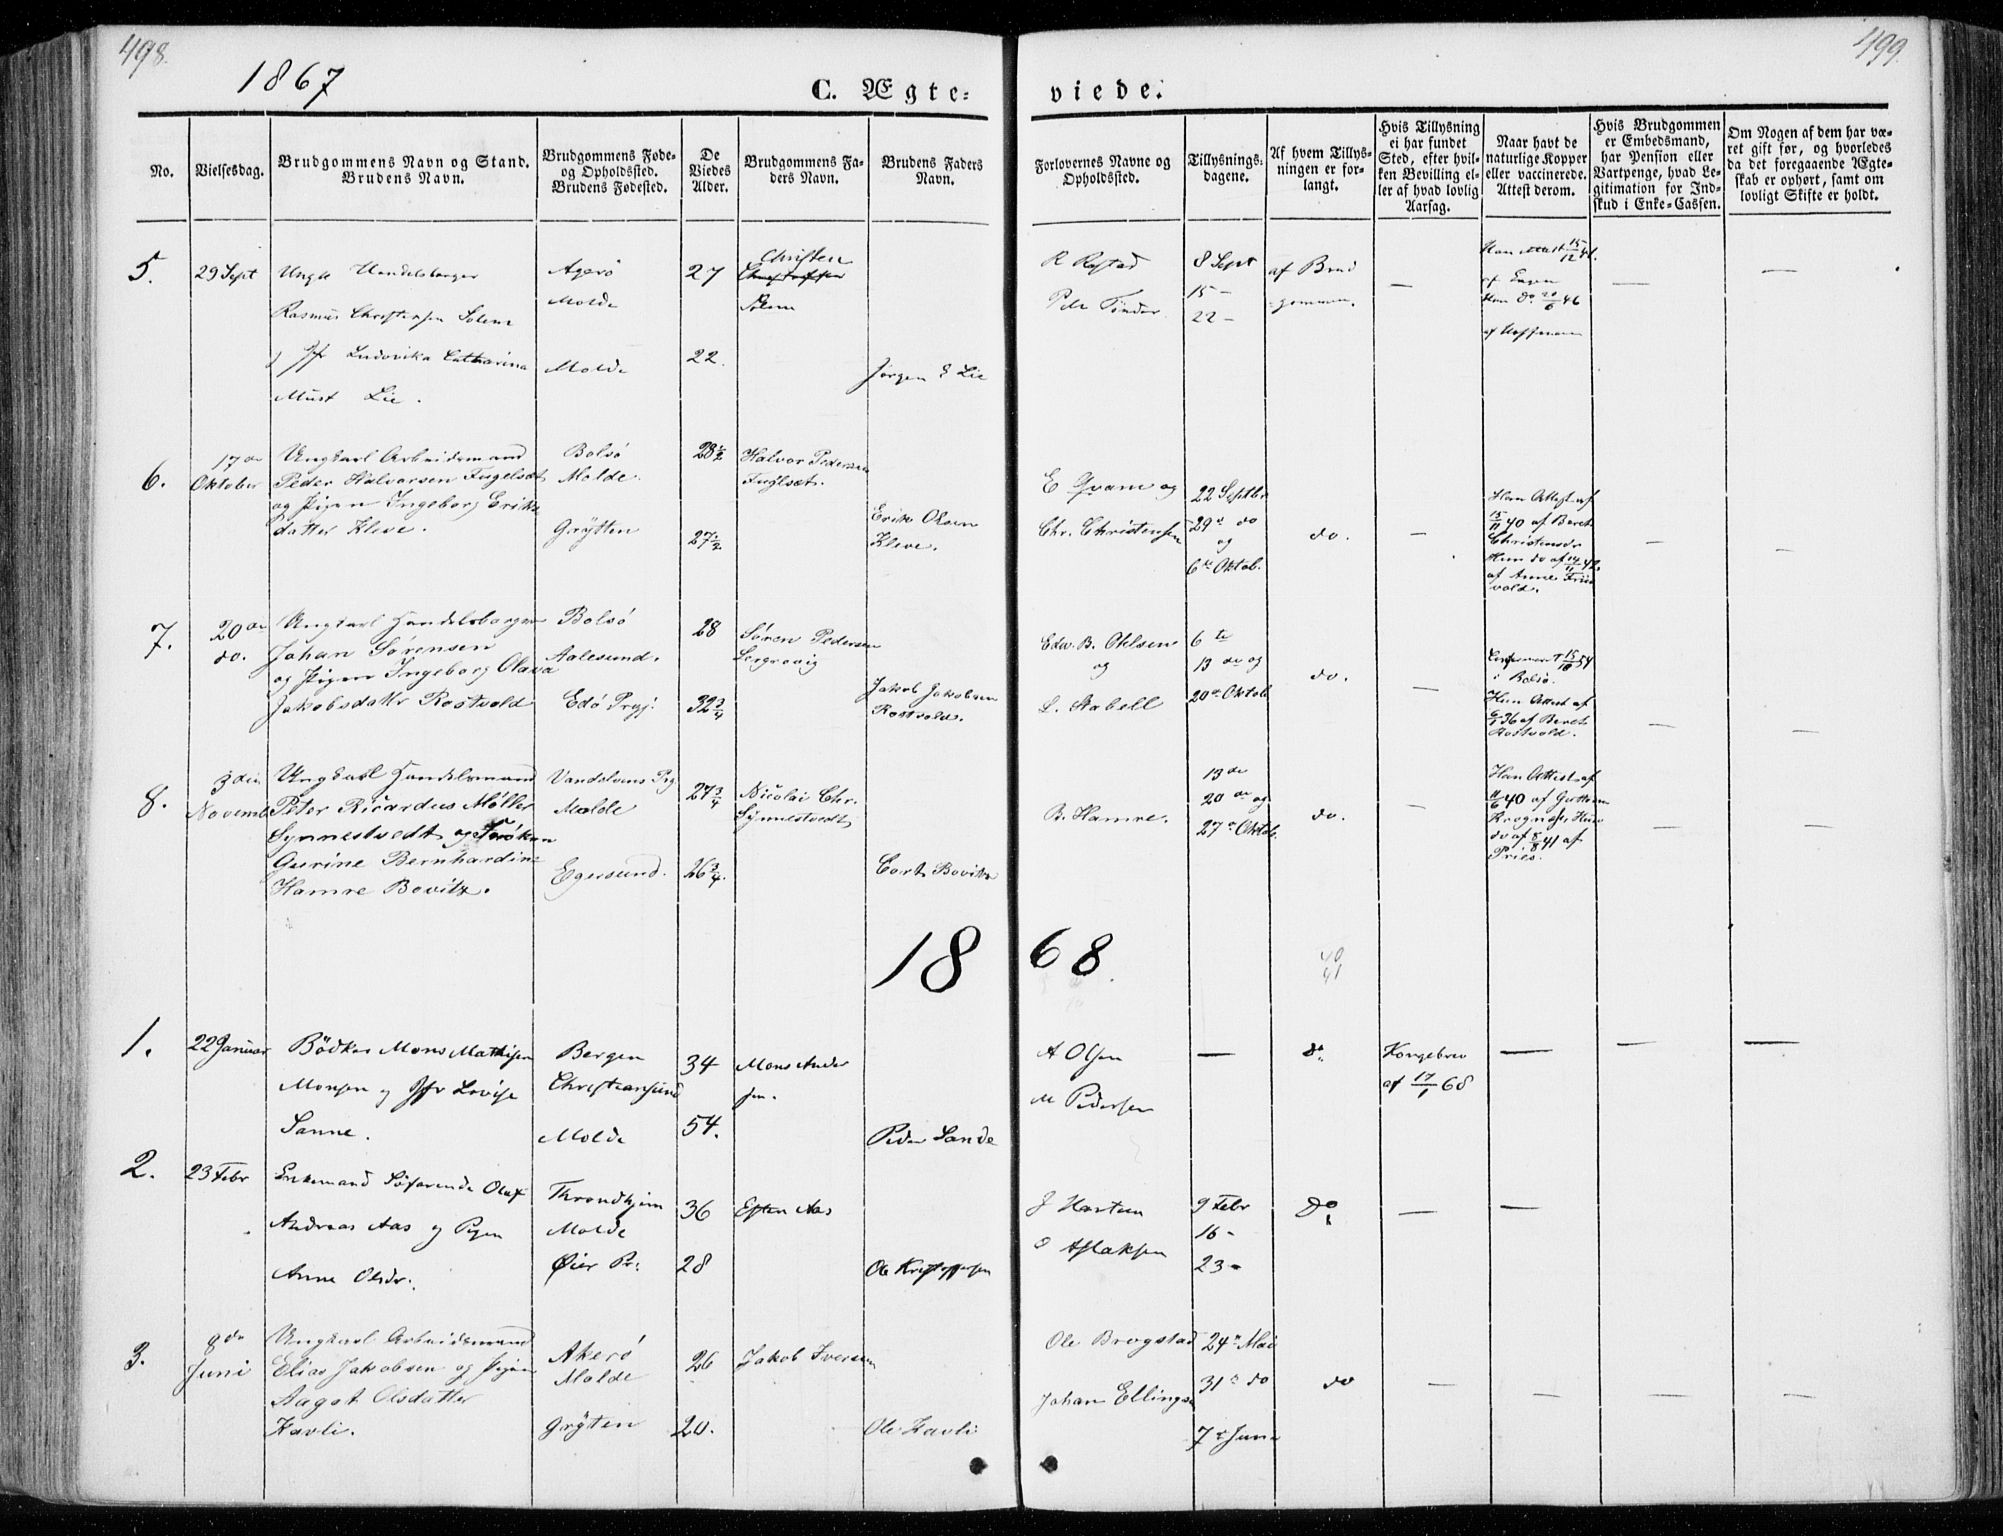 498.
499.
1867
C. Ægte=
viede.
No.
Vielsesdag.
Brudgommens Navn og Stand.
Brudens Navn.
Brudgommens Føde-
og Opholdssted.
Brudens Fødested.
De
Viedes
Alder.
Brudgommens Fa-
ders Navn.
Brudens Faders
Navn.
Forlovernes Navne og
Opholdssted.
Tillysnings-
dagene.
Af hvem Tillys-
ningen er for-
langt.
Hvis Tillysning
ei har fundet
Sted, efter hvil-
ken Bevilling el-
ler af hvad lovlig
Aarsag.
Naar havt de
naturlige Kopper
eller vaccinerede.
Attest derom.
Hvis Brudgommen
er Embedsmand,
har Pension eller
Vartpenge, hvad Le-
gitimation for Ind-
skud i Enke=Cassen.
Om Nogen af dem har væ-
ret gift før, og hvorledes
da det foregaaende Ægte-
skab er ophørt, samt om
lovligt Skifte er holdt.
5.
29 Sept
Ungk Handelsborger
Rasmus Christensen Solem
og Jfr Ludovika Catharina
Must Lie.
Agerö
Molde
Molde
27
22.
Christen
Solem
Jørgen E Lie
R Rostad
Peder Tönder.
8 Sept
15 –
22 –
af Brud
gommen.
—
Han Attest 15/12 41.
af Engen
Hun do 20/6 46
af Hoffmann
—
—
6.
17de
Oktober
Ungkarl Arbeidsmand
Peder Halvorsen Fugelsæt
og Pigen Ingeborg Eriks
datter Kleve.
Bolsö
Molde.
Grytten
28½
27½
Halvor Pedersen
Fuglsæt.
Erik Olsen
Kleve.
E Qvam og
Chr. Christensen
22 Septbr
29de do
og
6te Oktob.
do.
—
Han Attest af
15/11 40 af Beret
Christensdr
Hun do af 14/11 42
af Anne Friis
vold.
—
—
7.
20de
do.
Ungkarl Handelsborger
Johan Sørensen
og Pigen Ingeborg Olava
Jakobsdattr Rostvold
Bolsö
Aalesund.
Edö Prgj:
28
32¾
Søren Pedersen
Jakob Jakobsen
Rostvold.
Edv. B. Ohlsen
og
L. Stabell
6te
13de og
20de Oktob
do.
—
i Bolsö.
Hun Attest af
6/1 36 af Beret
Rostvold.
—
—
8.
3die
Novemb
Ungkarl Handelsmand
Peter Ricardus Møller
Synnestvedt og Frøken
Gurine Bernhardine
Hamre Bovitz.
Vandelvens Prg
Molde
Egersund.
27¾
26¾.
Nicolai Chr.
Synnestvedt
Cort Bovitz
B. Hamre.
13de
20de og
27de Oktob.
do.
—
Han Attest af
11/6 40 af Guttorm
Krognæs, Hun
do af 8/8 41 af
Pries.
—
—
1868.
40
41
1.
22 Januar
Bödker Mons Mathisen
Monsen og Jfr Lovise
Sanne.
Bergen
Christiansund
Molde
34
54.
Mons Ander
sen.
Peder Sande
A Olsen
M Pedersen
—
do.
Kongebrev
af 17/1 68
—
—
—
2.
23 Febr
Enkemand Söfarende Olaf
Andreas Aas og Pigen
Anne Olsdr.
Throndhjem
Molde
Øier Pr:
36
28
Esten Aas
Ole Kristoffersen
J Hastum
O Aslaksen
9 Febr
16 –
23 –
do
—
—
3.
8de
Juni
Ungkarl Arbeidsmand
Elias Jakobsen og Pigen
Aagot Olsdatter
Kavli.
Akerö
Molde
Grytten
26
20.
Jakob Iversen
Ole Kavli
Ole Brogstad
Johan Ellings.
24de Mai
31te do
7de Juni
do
—
—
—
—